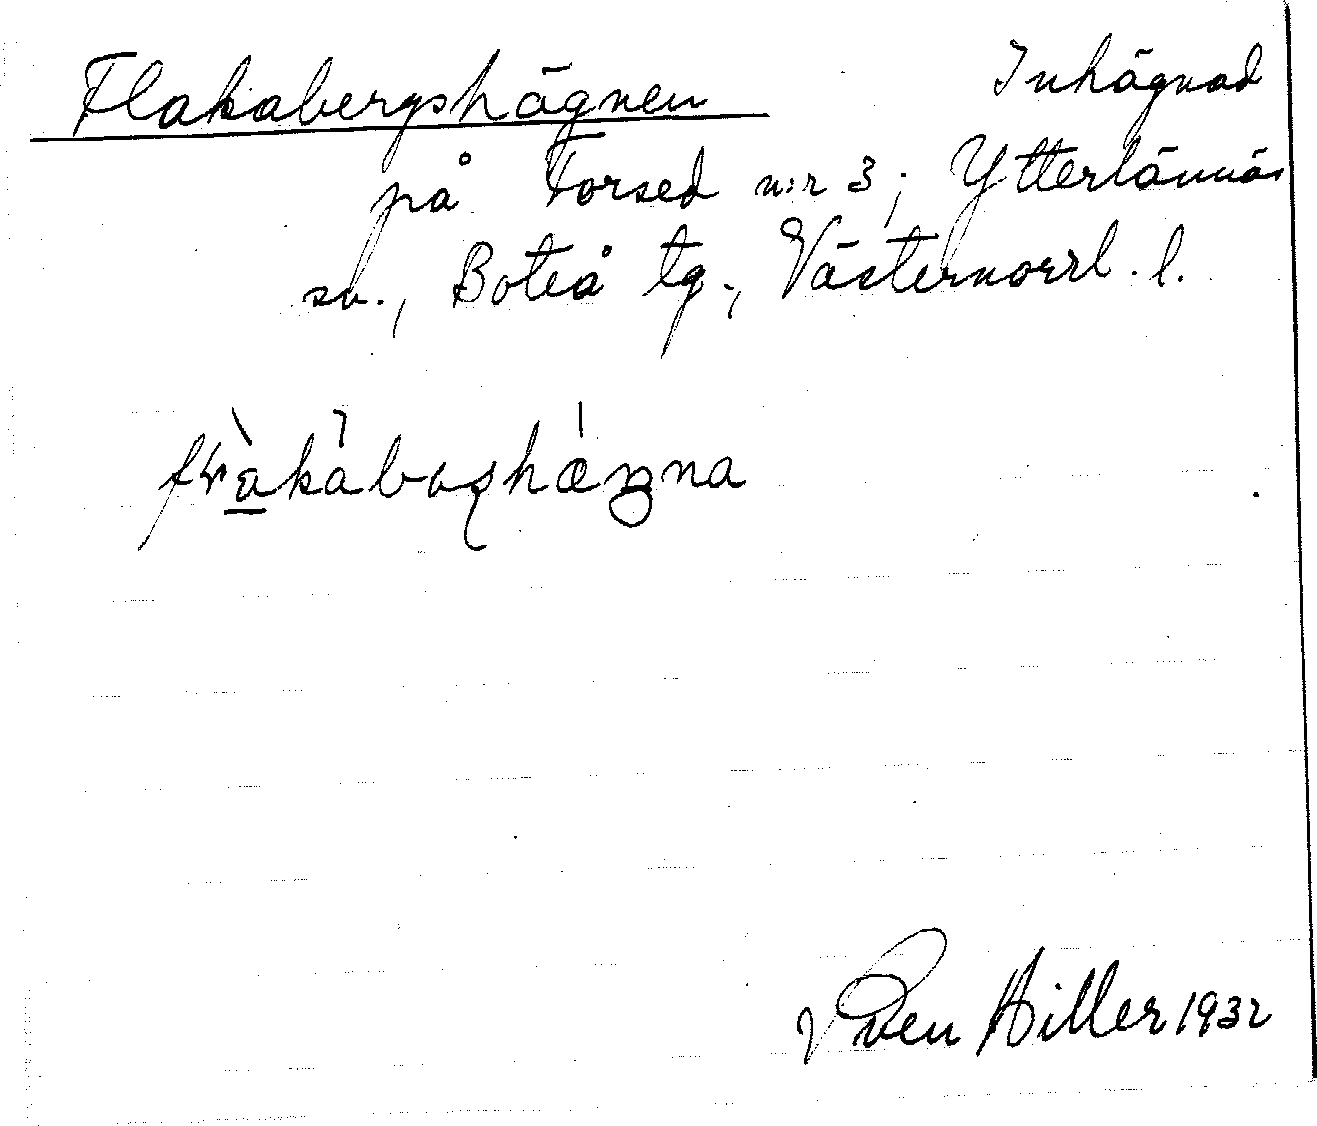 Flakabergshägnen Inhägnad
på Forsed n:r 3, Ytterlännäs
sn., Boteå tg., Västernorrl. l.
Sven Hiller 1932